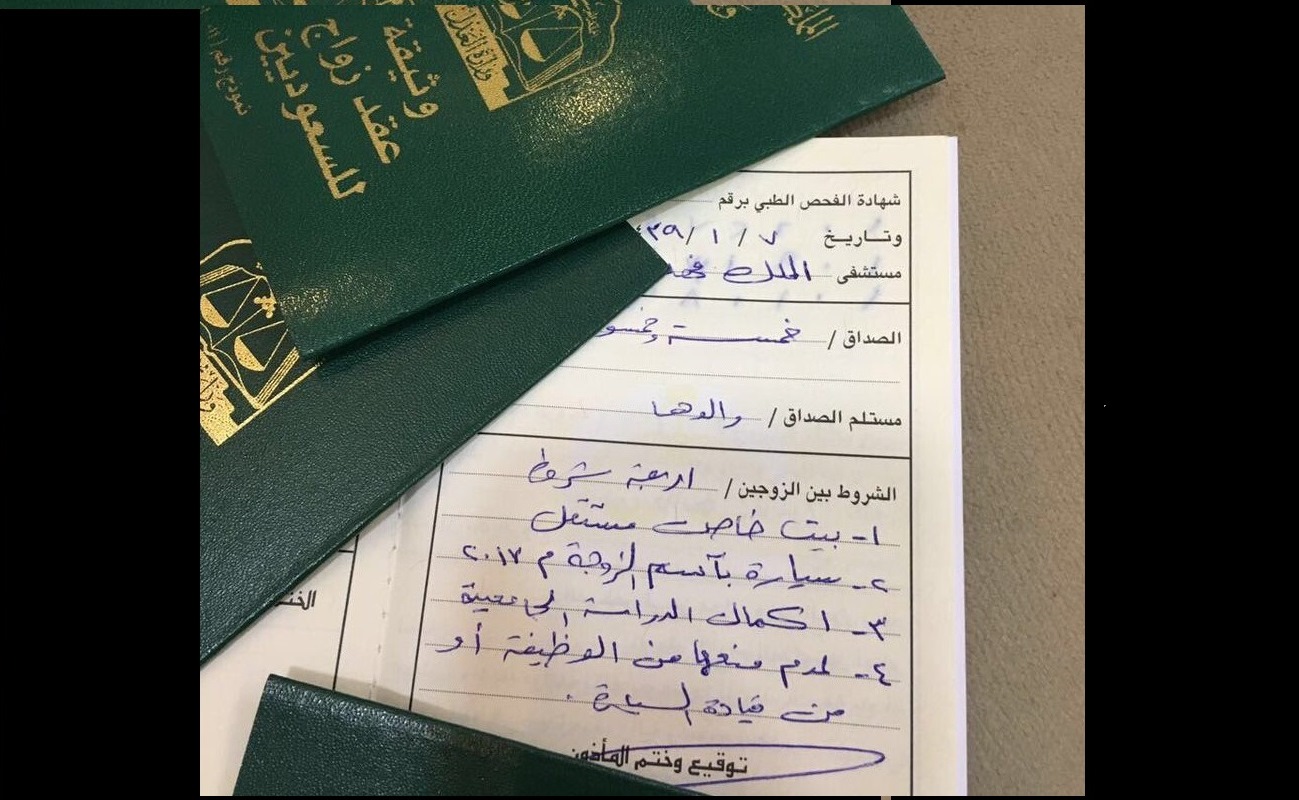 وثيقة
عقد زواج
للسعوديين
نموذج رقم
وزارة العدل
شهادة الفحص الطبي برقم
وتاريخ ٧ / ١ / ٣٩
مستشفى الملك فهد
الصداق / خمسة وخمسو
مستلم الصداق / والدها
الشروط بين الزوجين / اربعة شروط
١- بيت خاص مستقل
٢- سيارة بآسم الزوجة م ٢٠١٧
٣- اكمال الدراسة الجامعية
٤- لعدم منعها من الوظيفة أو
من قيادة السيارة .
توقيع وختم المأذون